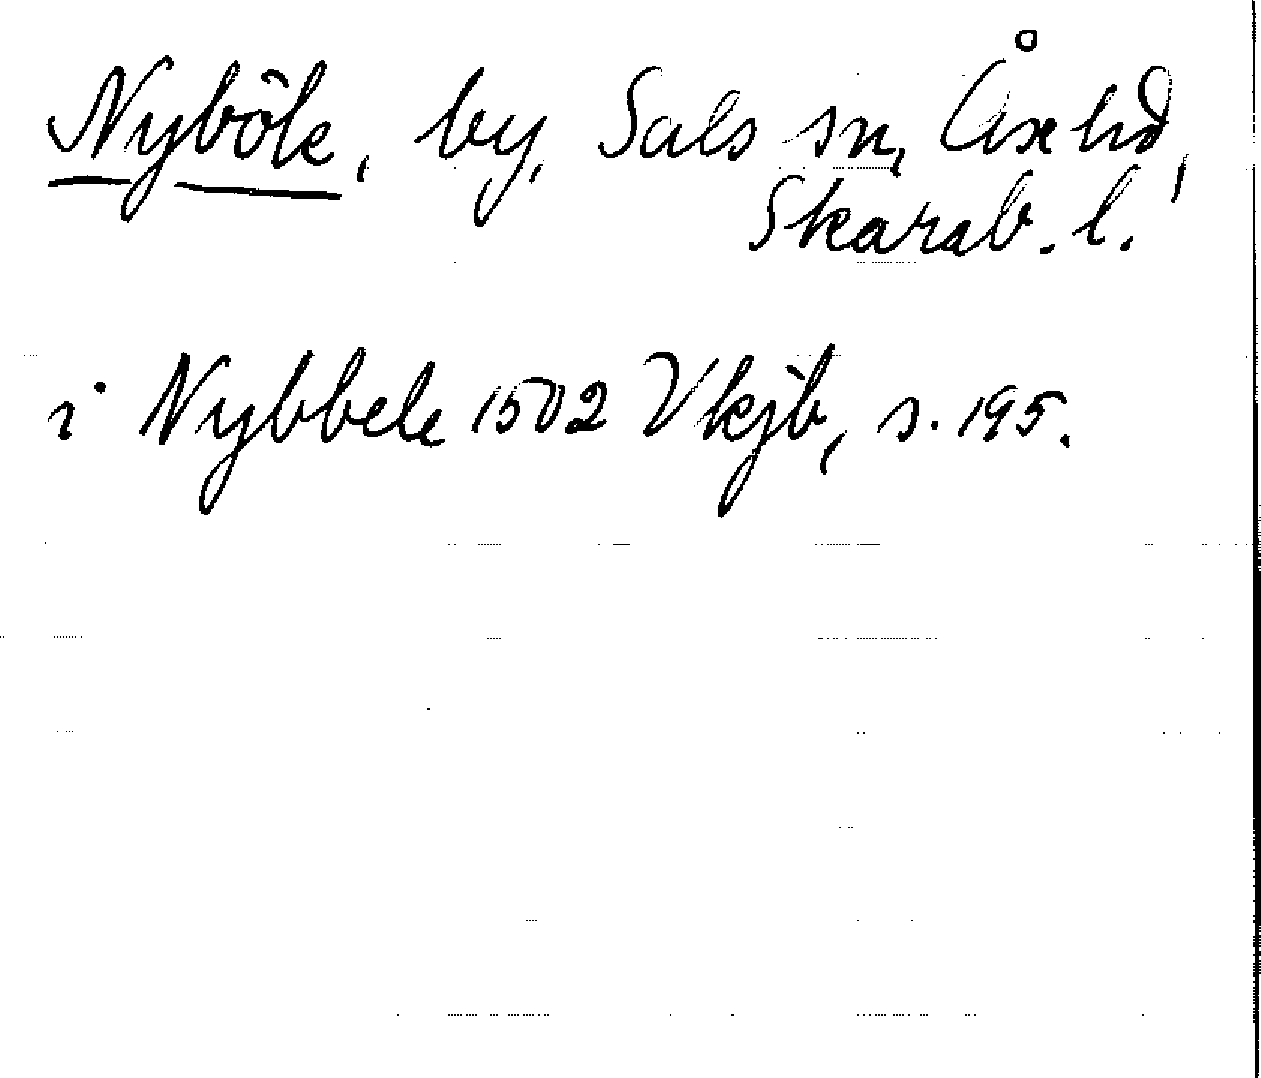 Nybôle, by, Sals sn, Åse hd,
Skarab. l.
i Nybbele 1502 Vkjb, s. 195.